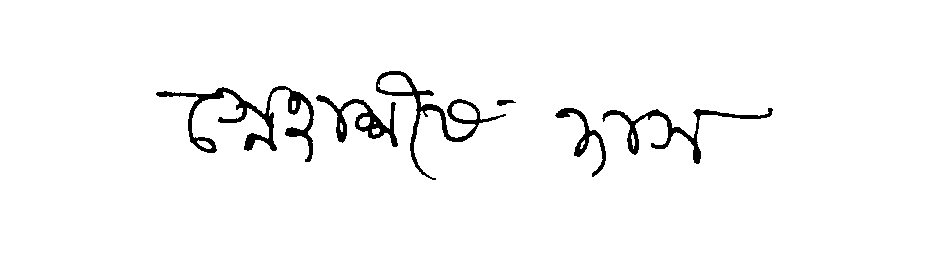 স্নেহাশীষ দাস